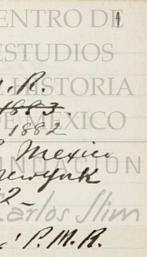 4
ENTRO DE
ESTUDIOS
HISTORIA
. R.
1883
1882
MEXICO
Mexico
FUNDACIÓN
New York
2 -
Carlos Slim
P. M. R.